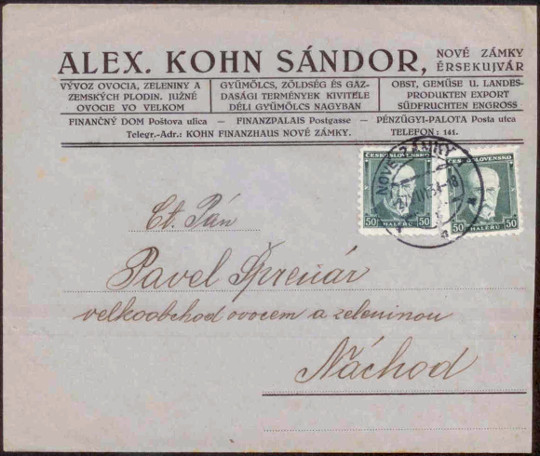 ALEX. KOHN SÁNDOR, NOVÉ ZÁMKY
ÉRSEKUJVÁR
VÝVOZ OVOCIA, ZELENINY A
ZEMSKÝCH PLODIN. JUŽNÉ
OVOCIE VO VELKOM
GYÜMÖLCS, ZÖLDSÉG ÉS GAZ-
DASÁGI TERMÉNYEK KIVITELE
DÉLI GYÜMÖLCS NAGYBAN
OBST, GEMÜSE U. LANDES-
PRODUKTEN EXPORT
SÜDFRUCHTEN ENGROSS
FINANČNÝ DOM Poštova ulica — FINANZPALAIS Postgasse — PÉNZÜGYI-PALOTA Posta utca
Telegr.-Adr.: KOHN FINANZHAUS NOVÉ ZÁMKY. TELEFON: 141.
NOVÉ ZÁMKY
ČESKOSLOVENSKO
50 HALÉŘŮ 50
ČESKOSLOVENSKO
50 HALÉŘŮ 50
Ct. Pán
Pavel Šprenár
velkoobchod ovocem a zeleninou
Náchod